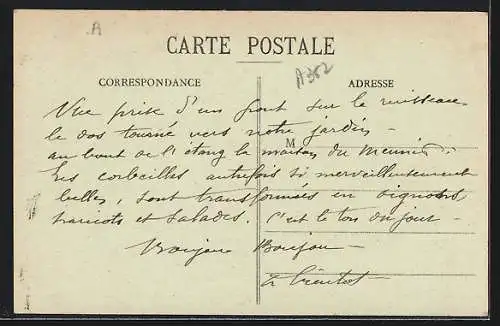 A
CARTE POSTALE
A 382
CORRESPONDANCE
ADRESSE
Vue prise d'un pont sur le ruisseau
le dos tourné vers notre jardin -
M
au bout de l'étang la maison du Meunier.
Les corbeilles autrefois si merveilleusement
belles, sont transformées en oignons
haricots et salades. C'est le ton du jour -
Bonjour
à bientôt -